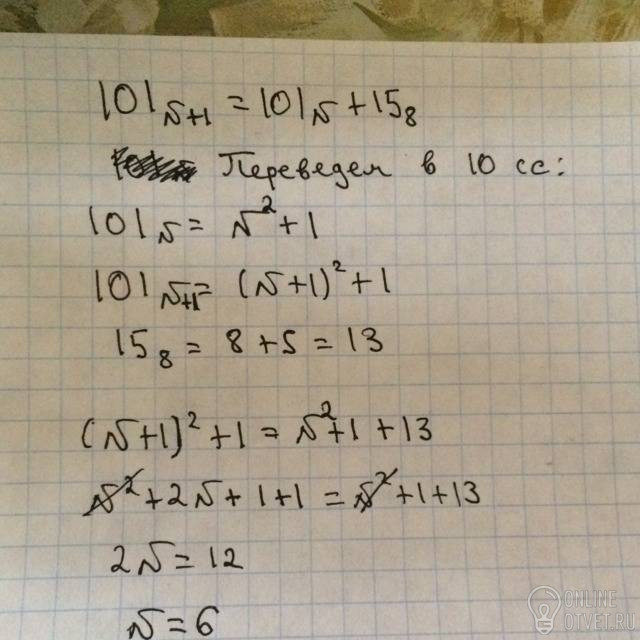 101_{N+1} = 101_N + 15_8
Переведем в 10 сс:
101_N = N² + 1
101_{N+1} = (N+1)² + 1
15_8 = 8 + 5 = 13
(N+1)² + 1 = N² + 1 + 13
N² + 2N + 1 + 1 = N² + 1 + 13
2N = 12
N = 6
ONLINE
OTVET.RU